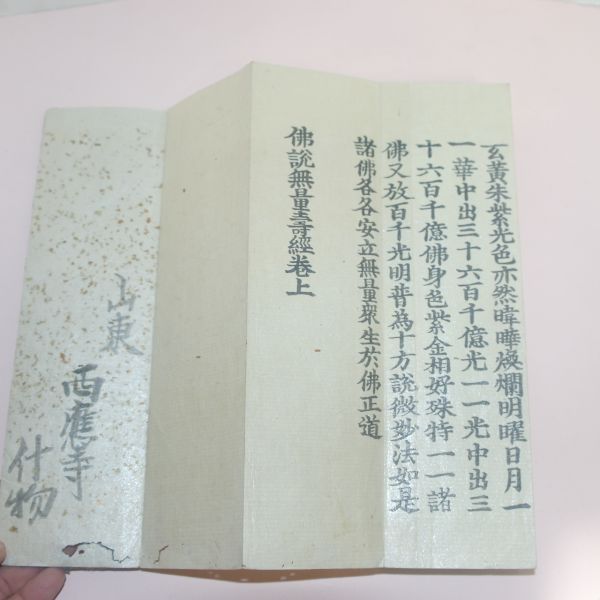 玄黃朱紫光色亦然暐曄煥爛明曜日月一
一華中出三十六百千億光一一光中出三
十六百千億佛身色紫金相好殊特一一諸
佛又放百千光明普為十方說微妙法如是
諸佛各各安立無量眾生於佛正道
佛說無量壽經卷上
山東
西應寺
什物